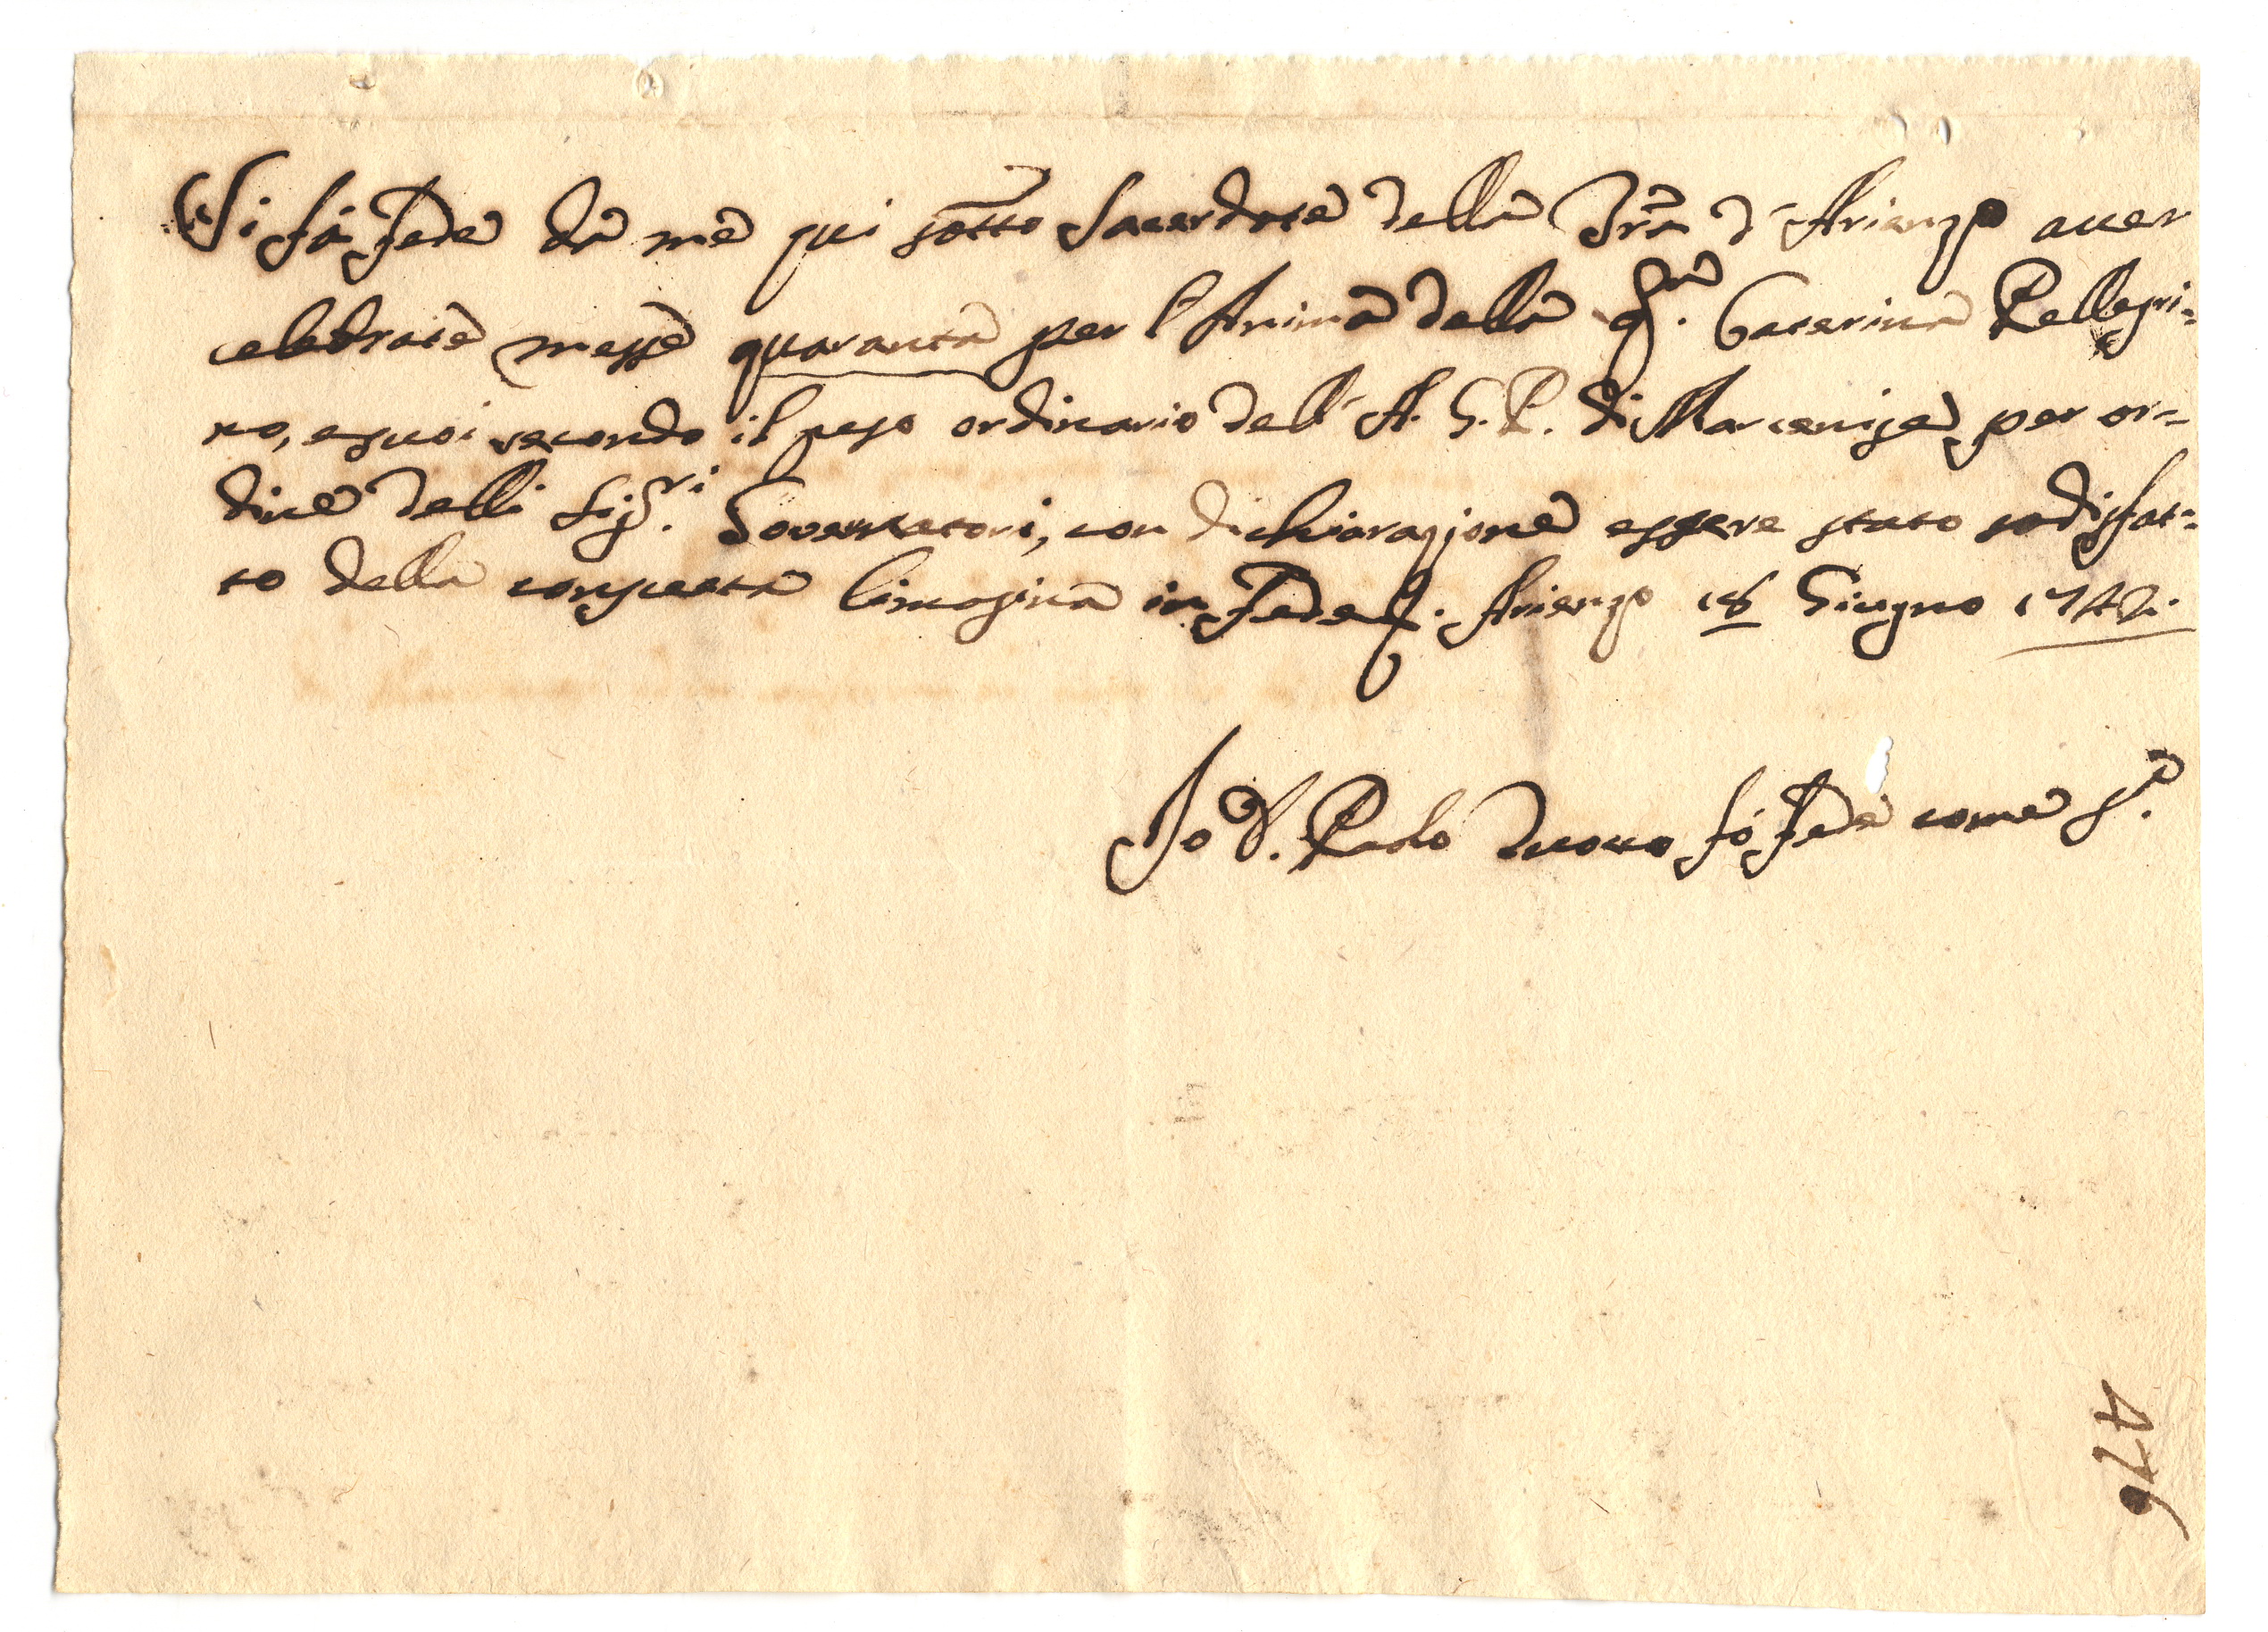 Si fà fede da me qui sotto Sacerdote della Trã d'Arienzo aver
celebrate messe quaranta per l'Anima della qm. Caterina Pellegri=
no, e suoi secondo il peso ordinario dell' A. G. P. di Marcenise, per or=
dine delli Sigri. Governatori, con dichiarazione essere stato sodisfat=
to della consueta limosina in fede. Arienzo 18 Giugno 1742.
Io D. Paolo fò fede come sa.
476